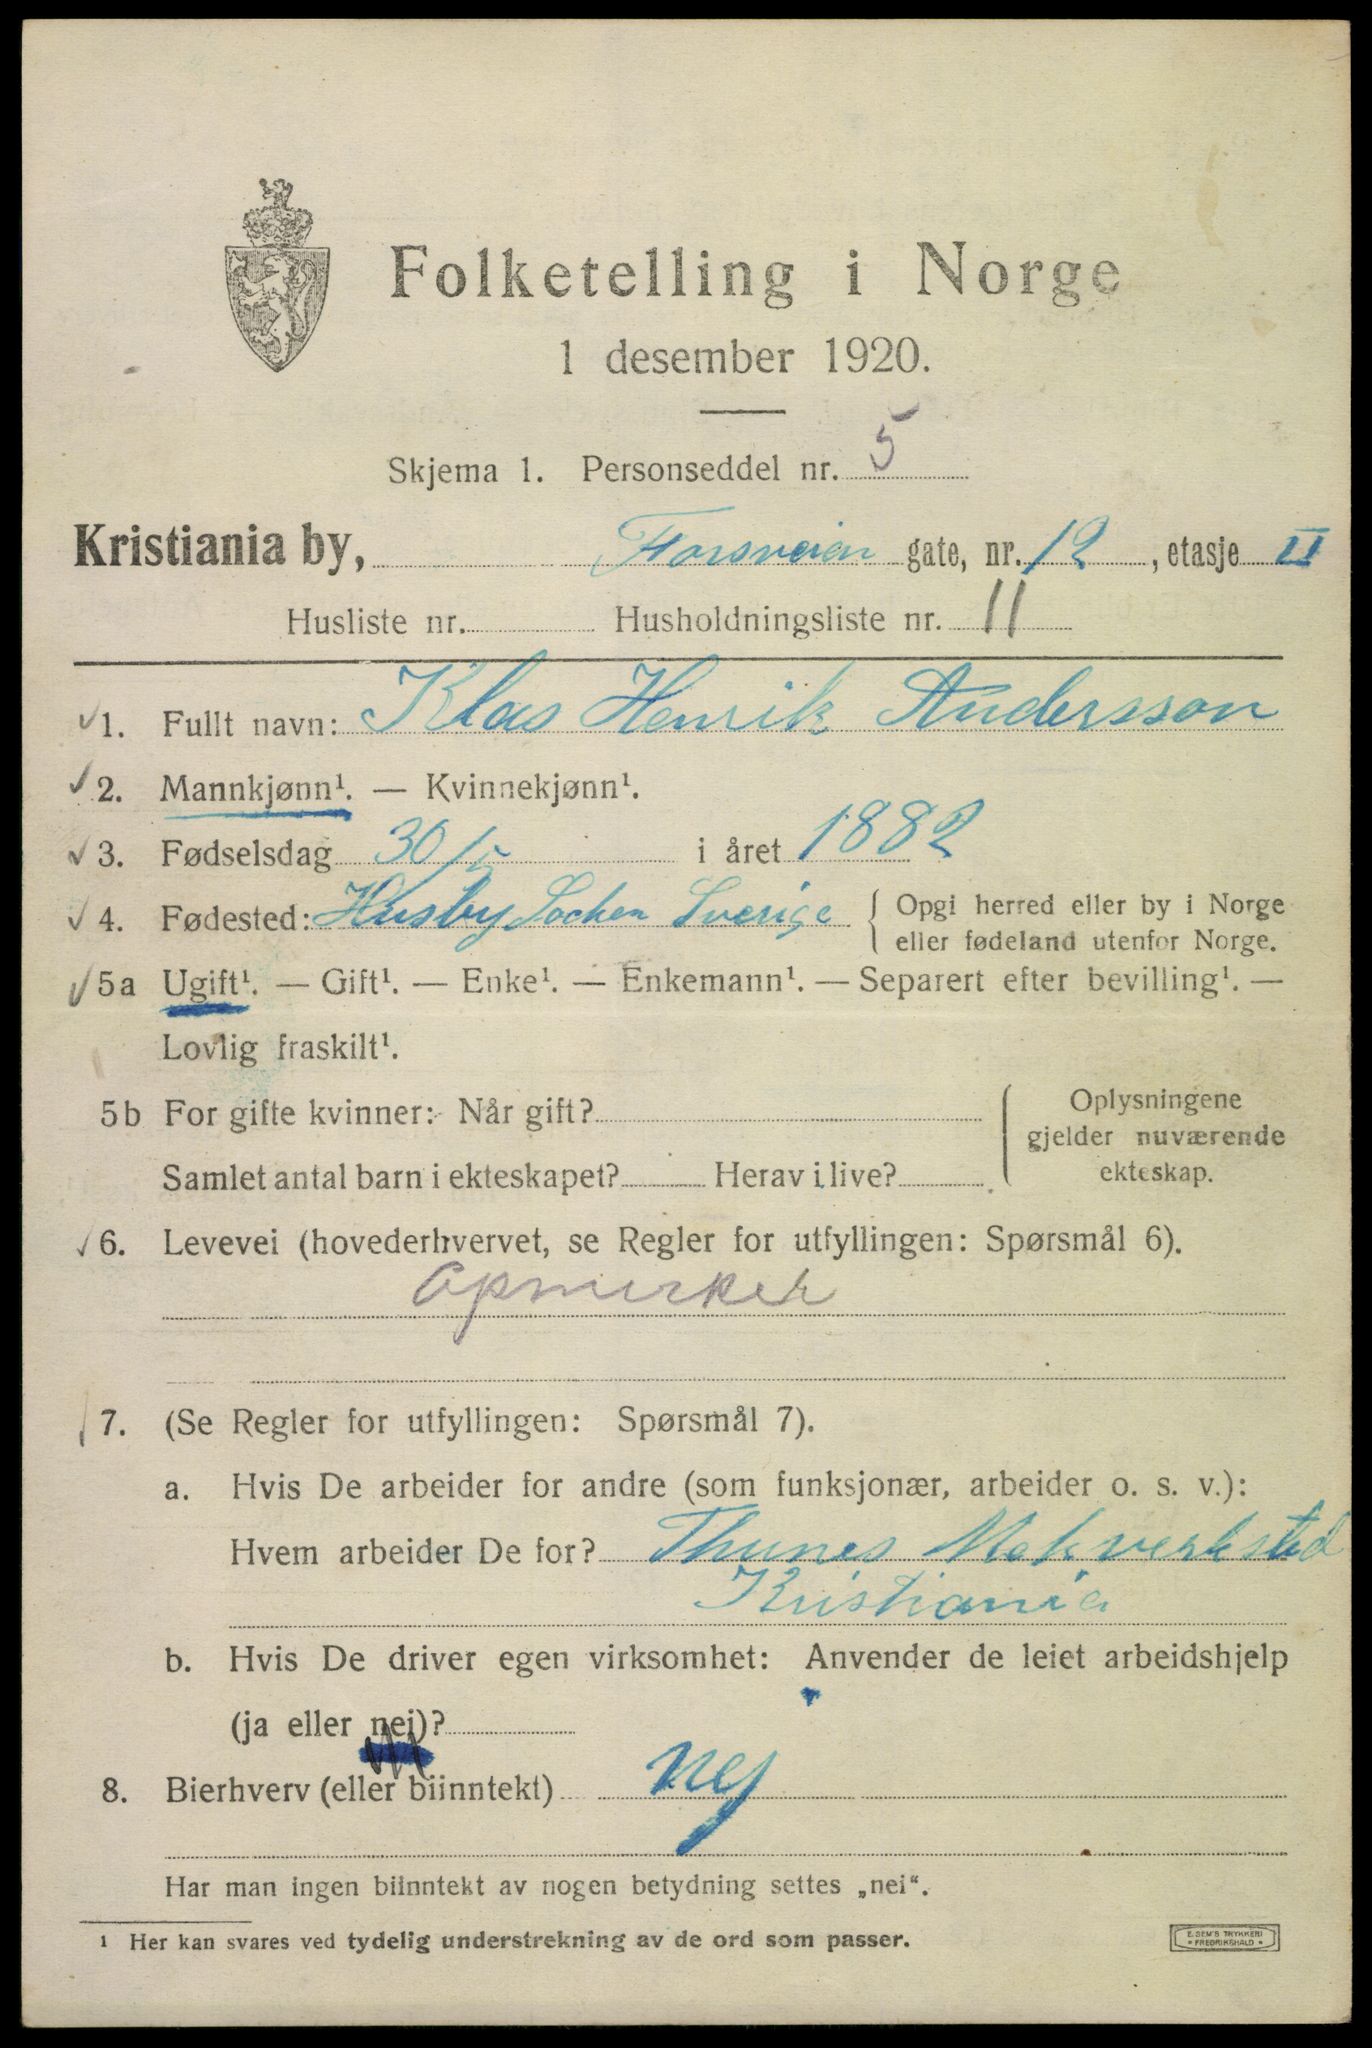 Folketelling i Norge
1 desember 1920.
Skjema 1. Personseddel nr. 5
Kristiania by, Forsveien gate, nr. 12, etasje II
Husliste nr. Husholdningsliste nr. 11
1. Fullt navn: Klas Henrik Andersson
2. Mannkjønn¹. — Kvinnekjønn¹.
3. Fødselsdag 30/5 i året 1882
4. Fødested: Husby Socken Sverige { Opgi herred eller by i Norge
eller fødeland utenfor Norge.
5a Ugift¹. — Gift¹. — Enke¹. — Enkemann¹. — Separert efter bevilling¹. —
Lovlig fraskilt¹.
5b For gifte kvinner: Når gift?
Samlet antal barn i ekteskapet? Herav i live?
Oplysningene
gjelder nuværende
ekteskap.
6. Levevei (hovederhvervet, se Regler for utfyllingen: Spørsmål 6).
Opmerker
7. (Se Regler for utfyllingen: Spørsmål 7).
a. Hvis De arbeider for andre (som funksjonær, arbeider o. s. v.):
Hvem arbeider De for? Thunes Mek verksted
Kristiania
b. Hvis De driver egen virksomhet: Anvender de leiet arbeidshjelp
(ja eller nei)?
8. Bierhverv (eller biinntekt) nej
Har man ingen biinntekt av nogen betydning settes „nei“.
¹ Her kan svares ved tydelig understrekning av de ord som passer.
E. SEM'S TRYKKERI
• FREDRIKSHALD •